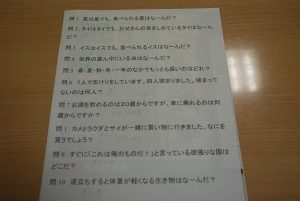 問1 星は星でも、食べられる星はなーんだ?
問2 タイはタイでも、お父さんの首をしめているタイはなーんだ?
問3 イスはイスでも、食べられるイスはなーんだ?
問4 世界の真ん中にいる虫はなーんだ?
問5 春・夏・秋・冬・一年のなかでもっとも長いのはどれ?
問6 7人で缶けりをしています。四人捕まりました。捕まって
ないのは何人?
問7 お酒を飲めるのは20歳からですが、車に乗れるのは何
歳からですか?
カメとラクダとサイが一緒に買い物に行きました。なにを
買うでしょう?
問9 すぐに「これは俺のものだ!」と言っている欲張りな国は
どこだ?
問10 逆立ちすると体重が軽くなる生き物はなーんだ?